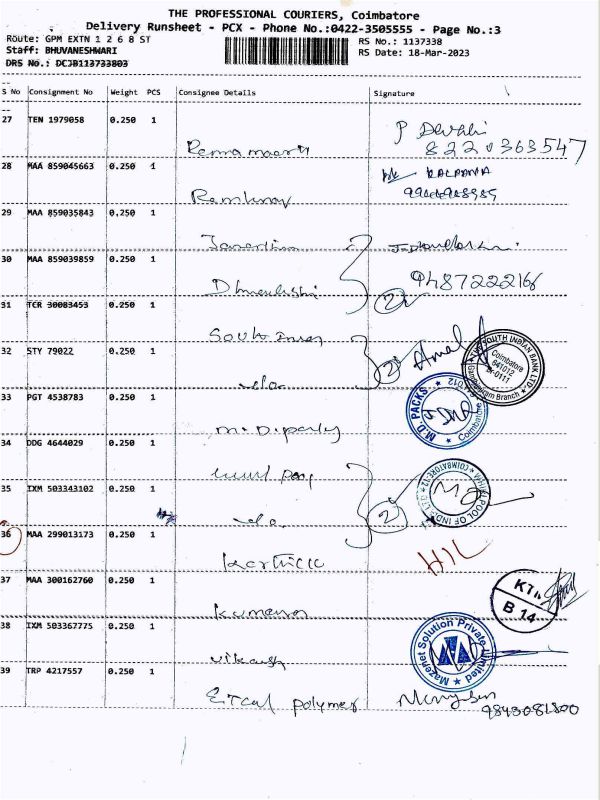 THE PROFESSIONAL COURIERS, Coimbatore
Delivery Runsheet - PCX - Phone No.:0422-3505555 - Page No.:3
Route: GPM EXTN 1 2 6 8 ST
RS No.: 1137338
Staff: BHUVANESHWARI
RS Date: 18-Mar-2023
DRS No.: DCJB113733803
S No Consignment No Weight PCS Consignee Details Signature
27 TEN 1979058 0.250 1
P Devaki
8220363547
28 MAA 859045663 0.250 1
KALPANA
29 MAA 859035843 0.250 1
30 MAA 859039859 0.250 1
Dhanalakshmi
9487222216
2
31 TCR 30083453 0.250 1
South Indian
32 STY 79022 0.250 1
2
Amal
THE SOUTH INDIAN BANK LTD.
Coimbatore
641012
Branch
33 PGT 4538783 0.250 1
M.D. PACKS
Coimbatore
34 DDG 4644029 0.250 1
35 IXM 503343102 0.250 1
2
POOL OF INDIA
COIMBATORE-12
36 MAA 299013173 0.250 1
Karthick
H/L
37 MAA 300162760 0.250 1
Kumaran
B 14
38 IXM 503367775 0.250 1
Vikash
Mazenet Solution Private Limited
39 TRP 4217557 0.250 1
Etcal polymer
9843081800